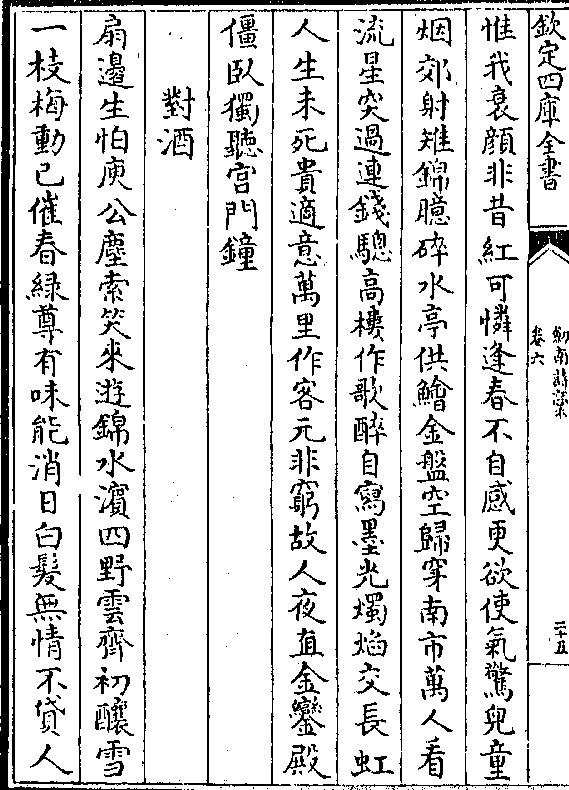 欽定四庫全書
劒南詩藁
卷六
二十五
惟我衰顔非昔紅可憐逢春不自感更欲使氣驚兒童
烟郊射雉錦臆碎水亭供鱠金盤空歸穿南市萬人看
流星突過連錢驄高樓作歌醉自寫墨光燭焰交長虹
人生未死貴適意萬里作客元非窮故人夜直金鑾殿
僵臥獨聽宫門鐘
對酒
扇邊生怕庾公塵索笑來遊錦水濱四野雲齊初釀雪
一枝梅動已催春緑尊有味能消日白髮無情不貸人